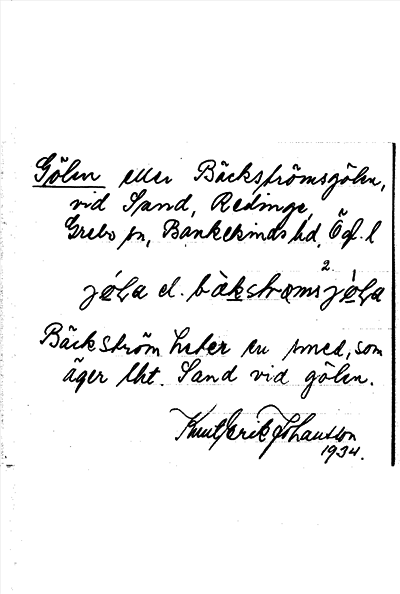 Gölen eller Bäckströmsgölen,
vid Sand, Redinge,
Grebo sn, Bankekinds hd, Ög. l
jöla el. bäkstroms²jöla
Bäckström heter en smed, som
äger lht. Sand vid gölen.
Knut Erik Johansson
1934.